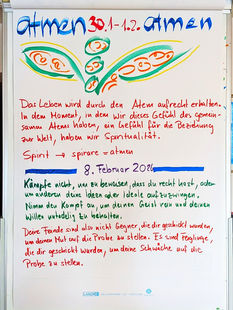 atmen 30.1-1.2. atmen
Das Leben wird durch den Atem aufrecht erhalten.
In dem Moment, in dem wir dieses Gefühl des gemein-
samen Atems haben, ein Gefühl für die Beziehung
zur Welt, haben wir Spiritualität.
Spirit → spirare = atmen
8. Februar 20
Kämpfe nicht, um zu beweisen, dass du recht hast, oder
um anderen deine Ideen oder Ideale aufzuzwingen.
Nimm den Kampf an, um deinen Geist rein und deinen
Willen untadelig zu behalten.
Deine Feinde sind also nicht Gegner, die dir geschickt wurden,
um deinen Mut auf die Probe zu stellen. Es sind Feiglinge,
die dir geschickt wurden, um deine Schwäche auf die
Probe zu stellen.